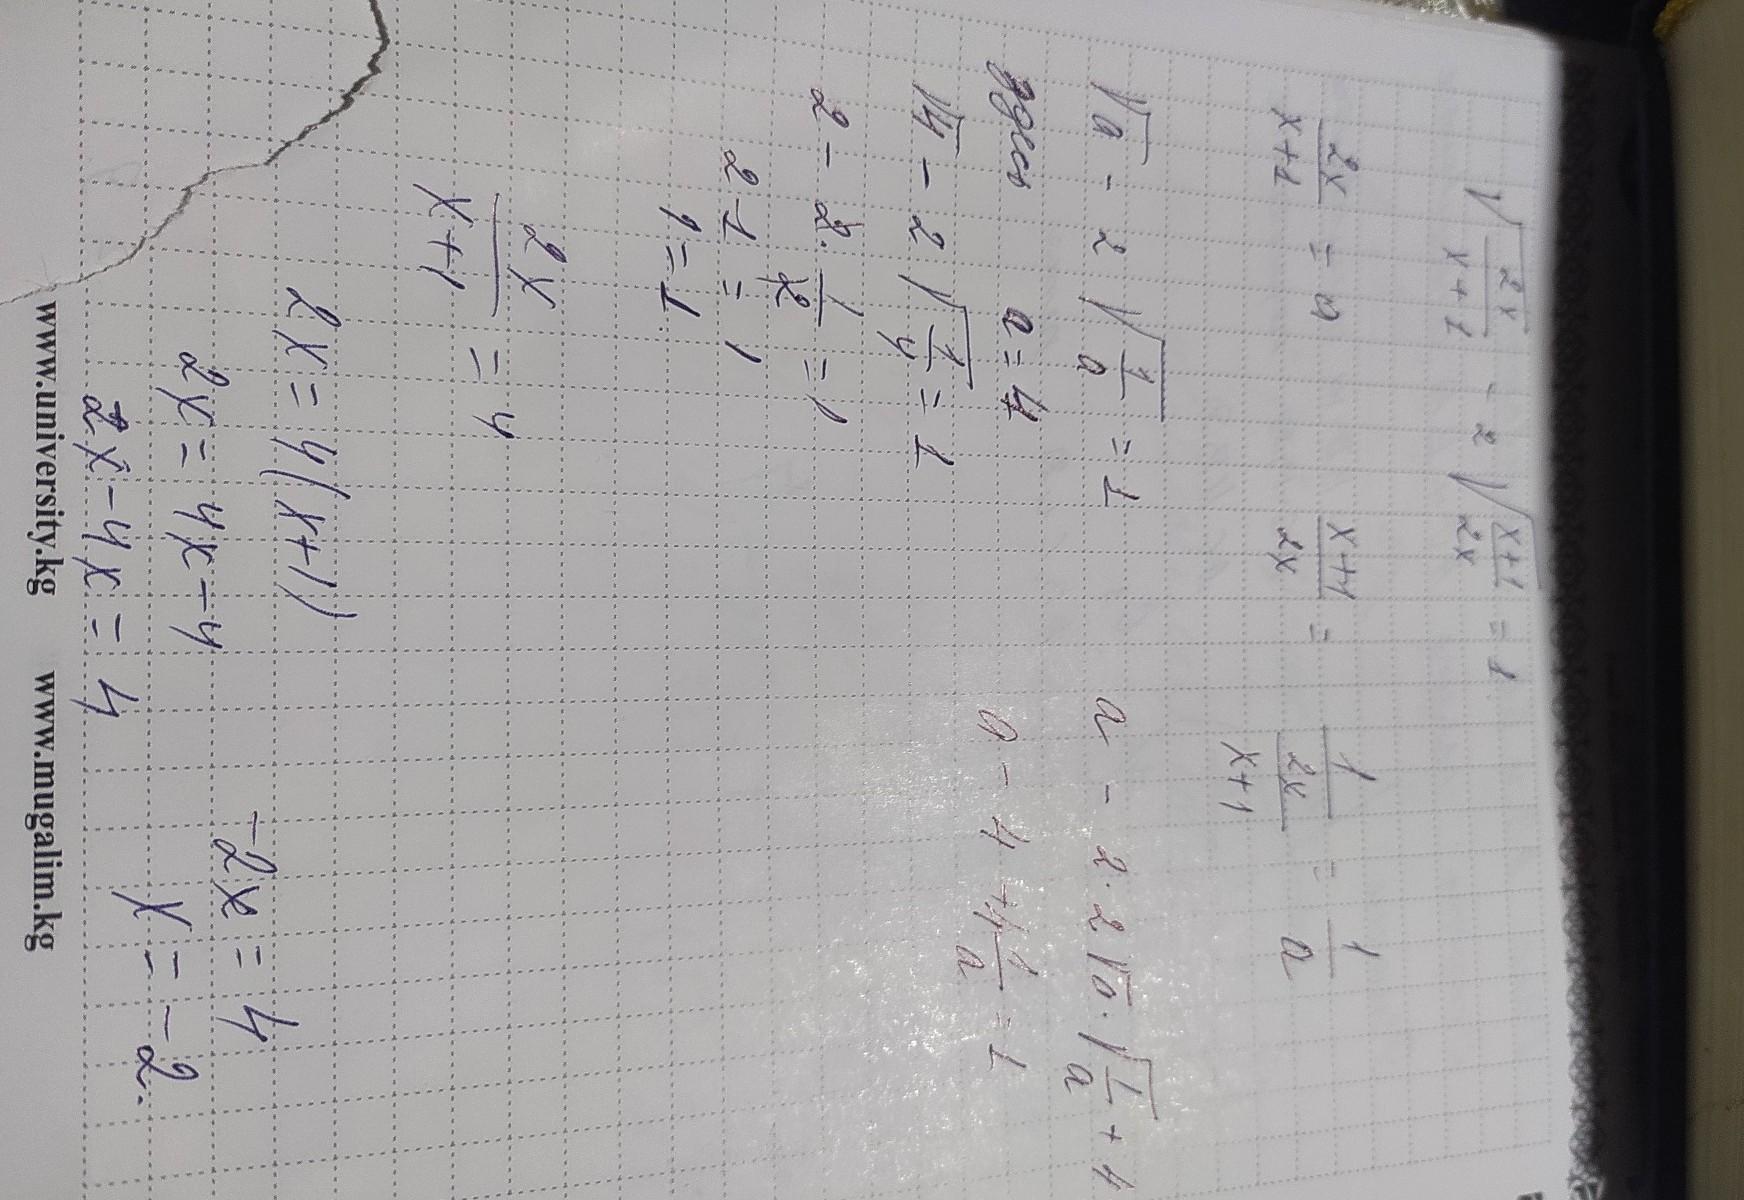 √(2x/(x+1)) - 2√((x+1)/2x) = 1
2x/(x+1) = a    (x+1)/2x = 1/(2x/(x+1)) = 1/a
√a - 2√(1/a) = 1    a - 2·2√a·√(1/a) + 4
a = 4    a - 4 + 4 1/a = 1
√4 - 2√(1/4) = 1
2 - 2·1/2 = 1
2-1 = 1
1 = 1
2x/(x+1) = 4
2x = 4(x+1)
2x = 4x-4    -2x = 4
2x-4x = 4    x = -2.
www.university.kg    www.mugalim.kg